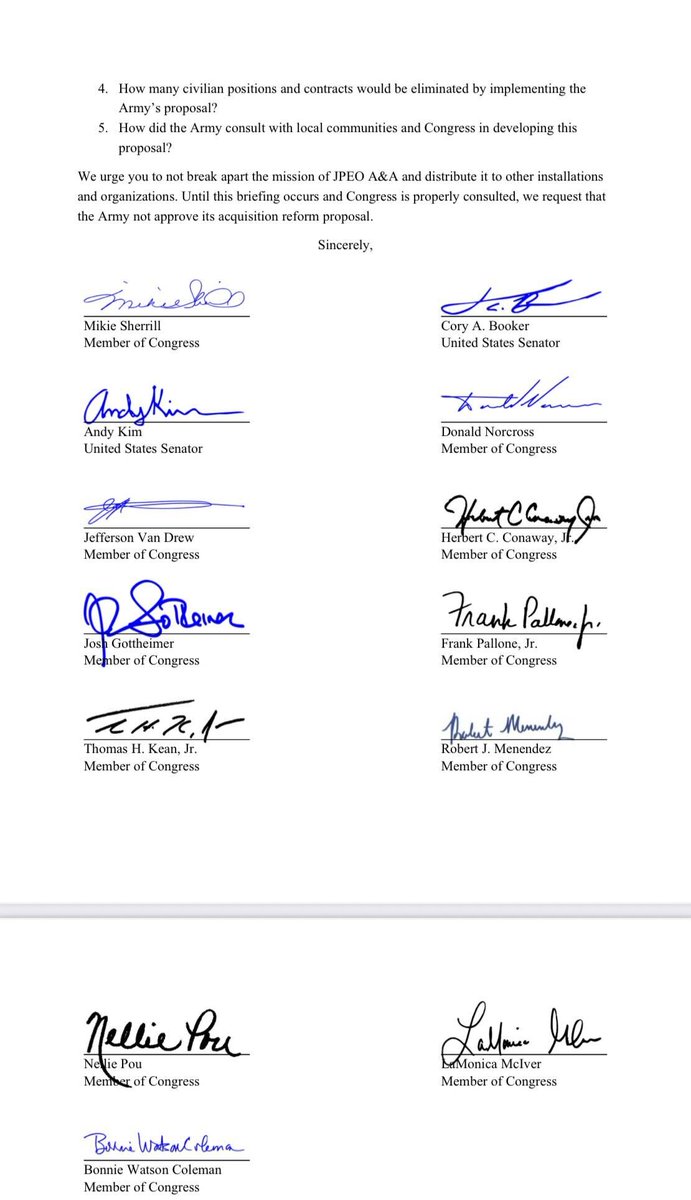 4. How many civilian positions and contracts would be eliminated by implementing the
Army's proposal?
5. How did the Army consult with local communities and Congress in developing this
proposal?
We urge you to not break apart the mission of JPEO A&A and distribute it to other installations
and organizations. Until this briefing occurs and Congress is properly consulted, we request that
the Army not approve its acquisition reform proposal.
Sincerely,
Mikie Sherrill
Mikie Sherrill
Member of Congress
Cory A. Booker
United States Senator
Andy Kim
Andy Kim
United States Senator
Donald Norcross
Member of Congress
Jefferson Van Drew
Member of Congress
Herbert C Conaway Jr
Herbert C. Conaway, Jr.
Member of Congress
Josh Gottheimer
Member of Congress
Frank Pallone, Jr.
Frank Pallone, Jr.
Member of Congress
Thomas H. Kean, Jr.
Member of Congress
Robert Menendez
Robert J. Menendez
Member of Congress
Nellie Pou
Nellie Pou
Member of Congress
LaMonica
LaMonica McIver
Member of Congress
Bonnie Watson Coleman
Bonnie Watson Coleman
Member of Congress